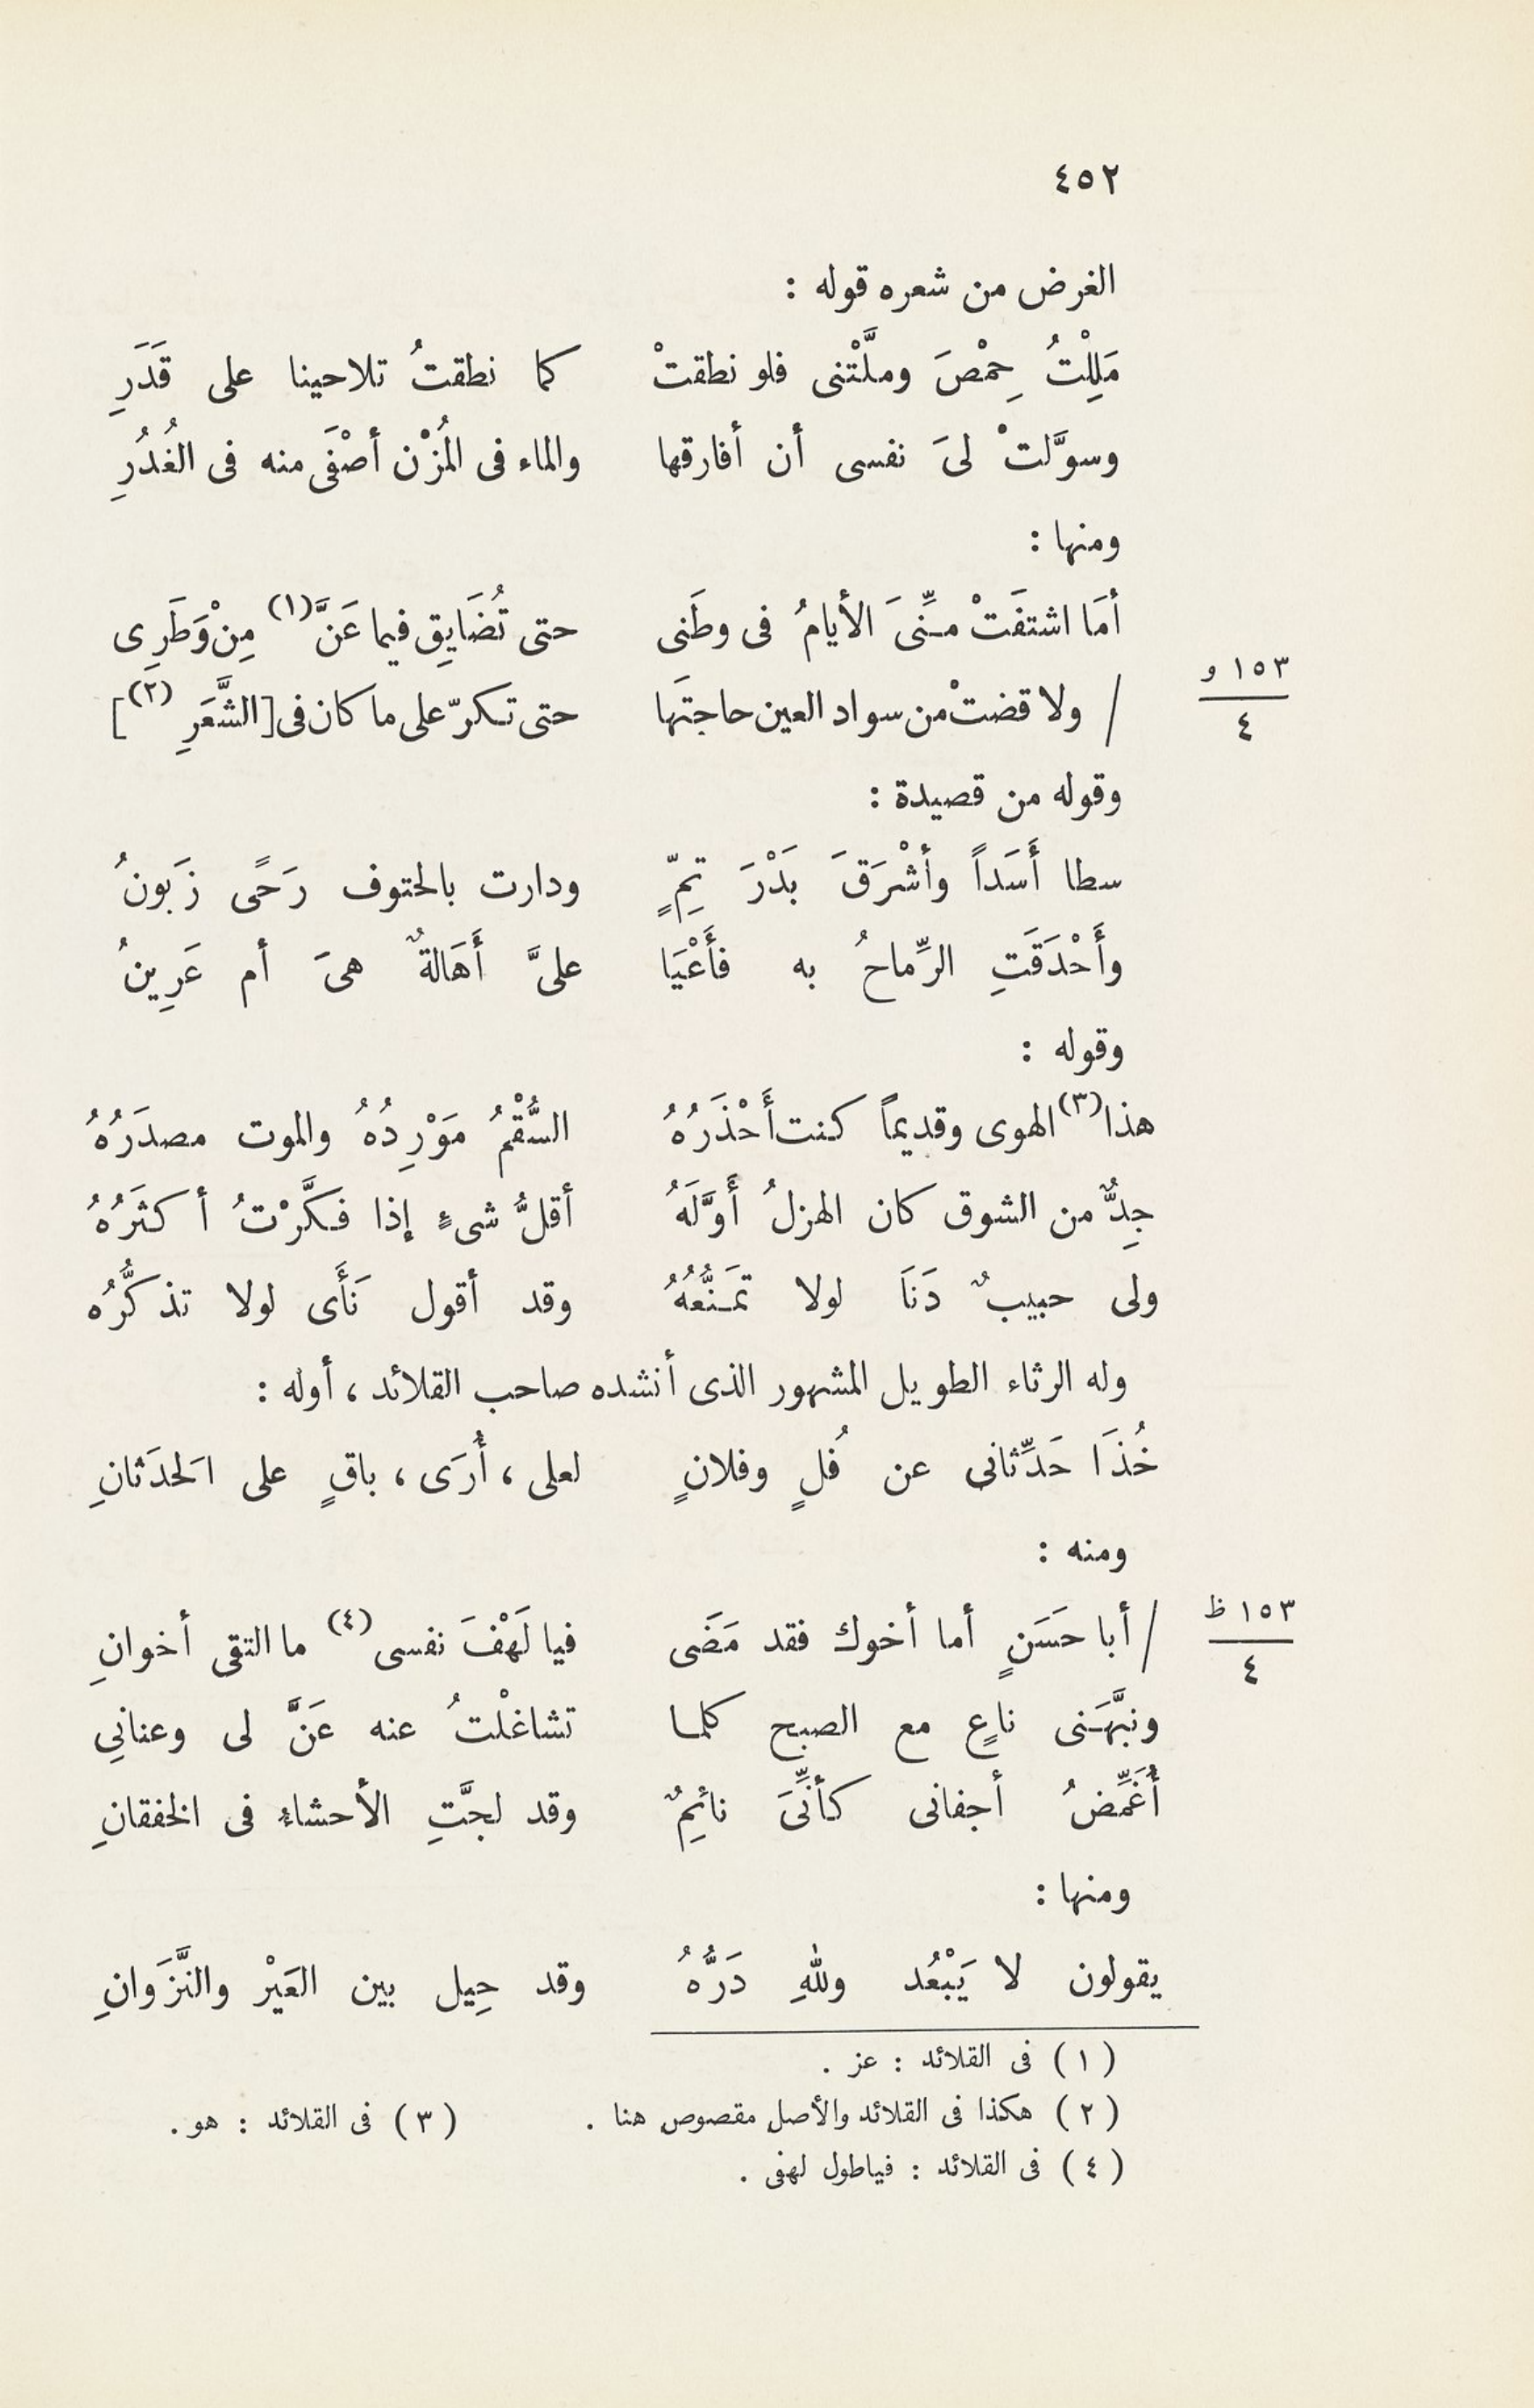 ٤٥٢
الغرض من شعره قوله :
مَلِلْتُ حِمْصَ وملَّتْنى فلو نطقتْ كما نطقتُ تلاحينا على قَدَرِ
وسوَّلتْ لىَ نفسى أن أفارقها والماء فى المُزْن أصْفَى منه فى الغُدُرِ
ومنها :
أمَا اشتفَتْ مـنِّىَ الأيامُ فى وطَنى حتى تُضَايِق فيما عَنَّ(١) مِنْ وَطَرِى
١٥٣ و
٤
/ ولا قضتْ من سواد العين حاجتَها حتى تـكرّ على ما كان فى [ الشَّعَرِ (٢) ]
وقوله من قصيدة :
سطا أَسَداً وأشْرَقَ بَدْرَ تِمٍّ ودارت بالحتوف رَحًى زَبونُ
وأَحْدَقَتِ الرِّماحُ به فأَعْيَا علىَّ أَهَالةٌ هىَ أم عَرِينُ
وقوله :
هذا(٣) الهوى وقديماً كنت أَحْذَرُهُ السُّقْمُ مَوْرِدُهُ والموت مصدَرُهُ
جِدٌّ من الشوق كان الهزلُ أَوَّلَهُ أقلُّ شىءٍ إذا فـكَّرْتُ أكثَرُهُ
ولى حبيبٌ دَنَا لولا تمَـنُّعُهُ وقد أقول نَأَى لولا تذكُّرُه
وله الرثاء الطويل المشهور الذى أنشده صاحب القلائد ، أوله :
خُذَا حَدِّثانى عن فُلٍ وفلانٍ لعلى ، أُرَى ، باقٍ على الحَدَثانِ
ومنه :
١٥٣ ظ
٤
/ أبا حَسَنٍ أما أخوك فقد مَضَى فيا لَهْفَ نفسى (٤) ما التقى أخوانِ
ونبَّهَـنى ناعٍ مع الصبح كلمـا تشاغلْتُ عنه عَنَّ لى وعنانِي
أُغَمِّضُ أجفانى كأنِّىَ نائِمٌ وقد لجَّتِ الأحشاءُ فى الخفقانِ
ومنها :
يقولون لا يَبْعُد وللهِ دَرُّهُ وقد حِيل بين العَيْرْ والنَّزَوانِ
( ١ ) فى القلائد : عز .
( ٢ ) هكذا فى القلائد والأصل مقصوص هنا . ( ٣ ) فى القلائد : هو .
( ٤ ) فى القلائد : فياطول لهفى .